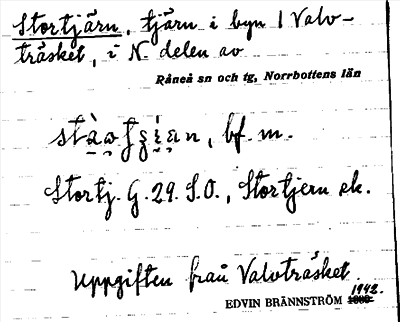 Stortjärn, tjärn i byn 1 Valv-
träsket, i N. delen av
Råneå sn och tg, Norrbottens län
bf. m.
Stortj. G. 29. S.O., Stortjern ek.
Uppgiften från Valvträsket.
1942.
EDVIN BRÄNNSTRÖM